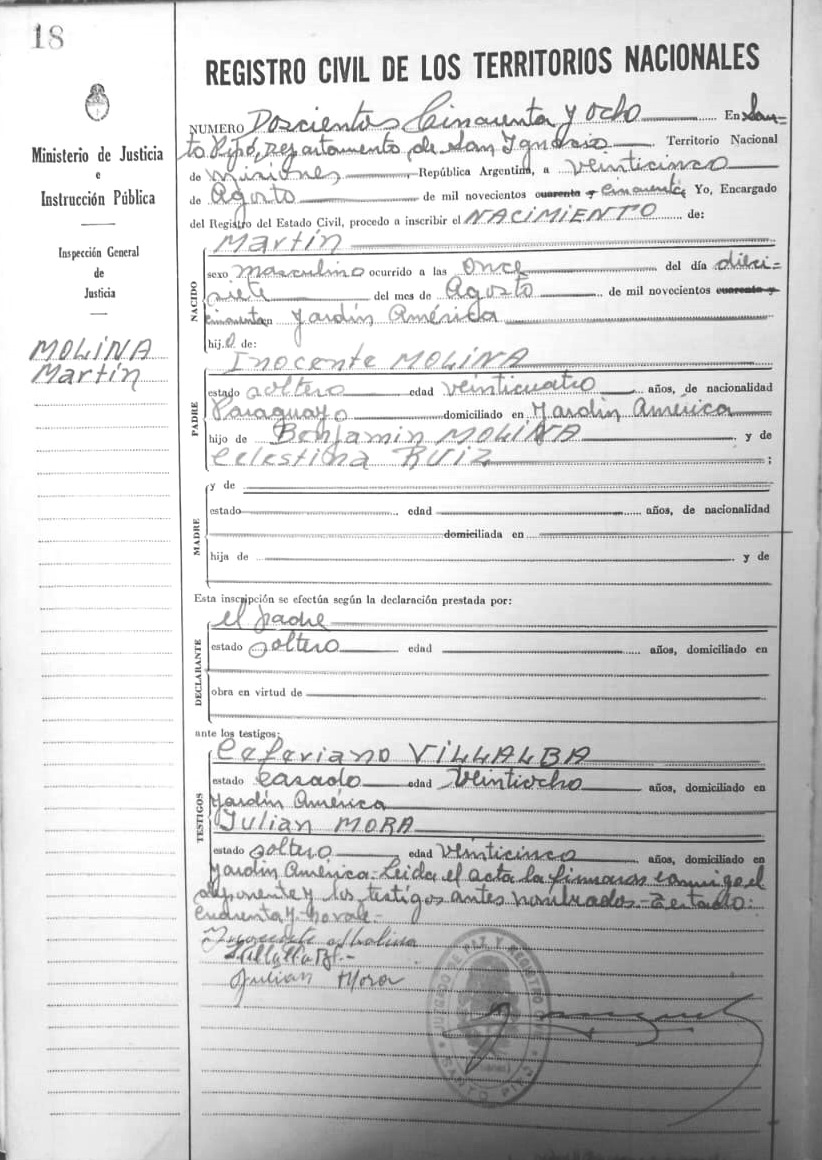 18
Ministerio de Justicia
e
Instrucción Pública
Inspección General
de
Justicia
MOLINA
Martín
REGISTRO CIVIL DE LOS TERRITORIOS NACIONALES
NUMERO Doscientos Cincuenta y ocho En San=
to Pipó, departamento de San Ignacio Territorio Nacional
de Misiones, República Argentina, a veinticinco
de Agosto de mil novecientos cuarenta y cincuenta Yo, Encargado
del Registro del Estado Civil, procedo a inscribir el NACIMIENTO de:
NACIDO
Martín
sexo masculino ocurrido a las once del día dieci=
siete del mes de Agosto de mil novecientos cuarenta y
cincuenta en Jardín América
hijo de:
PADRE
Inocente MOLINA
estado soltero edad veinticuatro años, de nacionalidad
Paraguayo domiciliado en Jardín América
hijo de Benjamin MOLINA y de
Celestina RUIZ ;
MADRE
y de
estado edad años, de nacionalidad
domiciliada en
hija de y de
Esta inscripción se efectúa según la declaración prestada por:
DECLARANTE
el padre
estado soltero edad años, domiciliado en
obra en virtud de
ante los testigos:
TESTIGOS
Ceferiano VILLALBA
estado casado edad Veintiocho años, domiciliado en
Jardín América
Julian MORA
estado soltero edad Veinticinco años, domiciliado en
Jardín América - Leida el acta la firmaron conmigo el
deponente y los testigos antes nombrados - Testado:
cuarenta y - vale -
Inocente Molina
Villalba
Julian Mora
JUZGADO DE PAZ Y REGISTRO CIVIL
SANTO PIPÓ